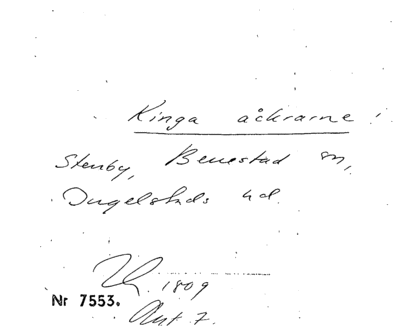 Kinga åkrarne!
Stenby, Benestad sn,
Ingelstads hd.
1809
Nr 7553.
Ant. 7.